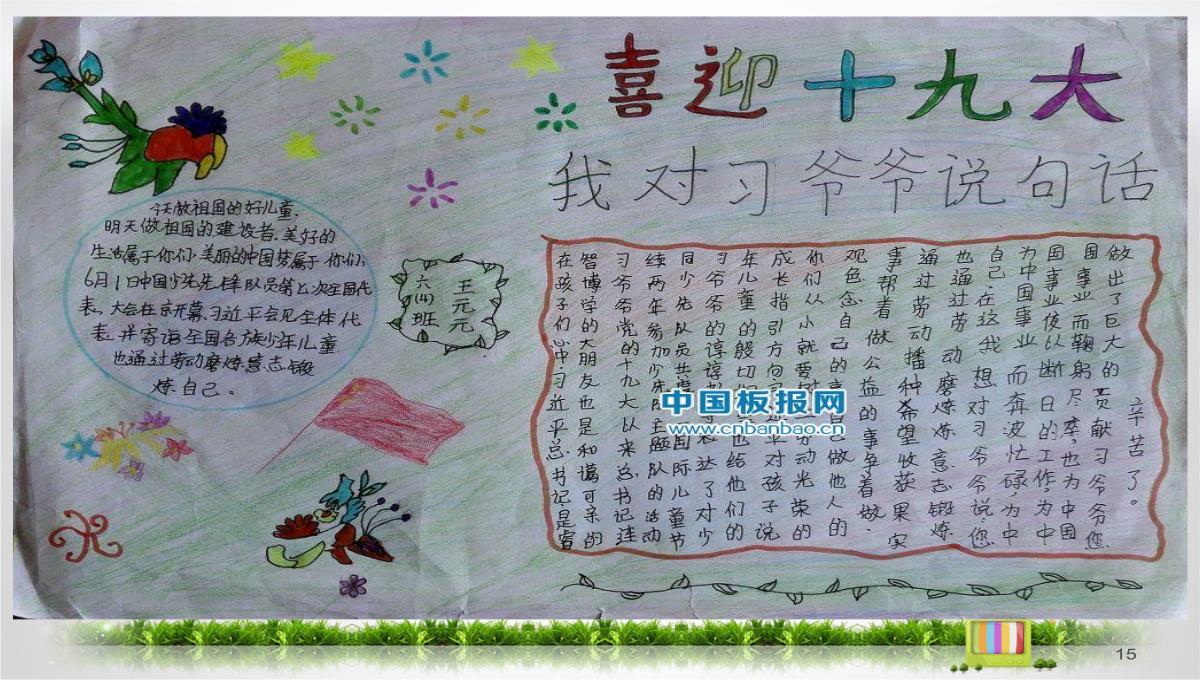 喜迎十九大
我对习爷爷说句话
今天做祖国的好儿童,
明天做祖国的建设者.美好的
生活属于你们.美丽的中国梦属于你们,
6月1日中国少先先锋队员第七次全国代
表。大会在京开幕.习近平会见全体代
表.并寄语全国各族少年儿童
也通过劳动磨炼意志锻
炼自己。
六(4)班
王元元
在孩子们心中,习近平总书记是睿
智博学的大朋友也是和蔼可亲的
习爷爷党的十九大以来总书记连
续两年参加少先队主题队的活动
同少先队员共度国际儿童节
习爷爷的谆谆表达了对少
年儿童的殷切也给他们的
成长指引方向平对孩子说
你们从小就要树劳动光荣的
观念自己的事自己做他人的
事帮着做公益的事争着做
通过劳动播种希望收获果实
也通过劳动磨炼意志锻炼
自己,在这我想对习爷爷说:您
为中国事业而奔波忙碌,为中
国事业夜以断日的工作,为中
国事业而鞠躬尽瘁,也为中国
做出了巨大的贡献习爷爷您
辛苦了。
中国板报网
www.cnbanbao.cn
15